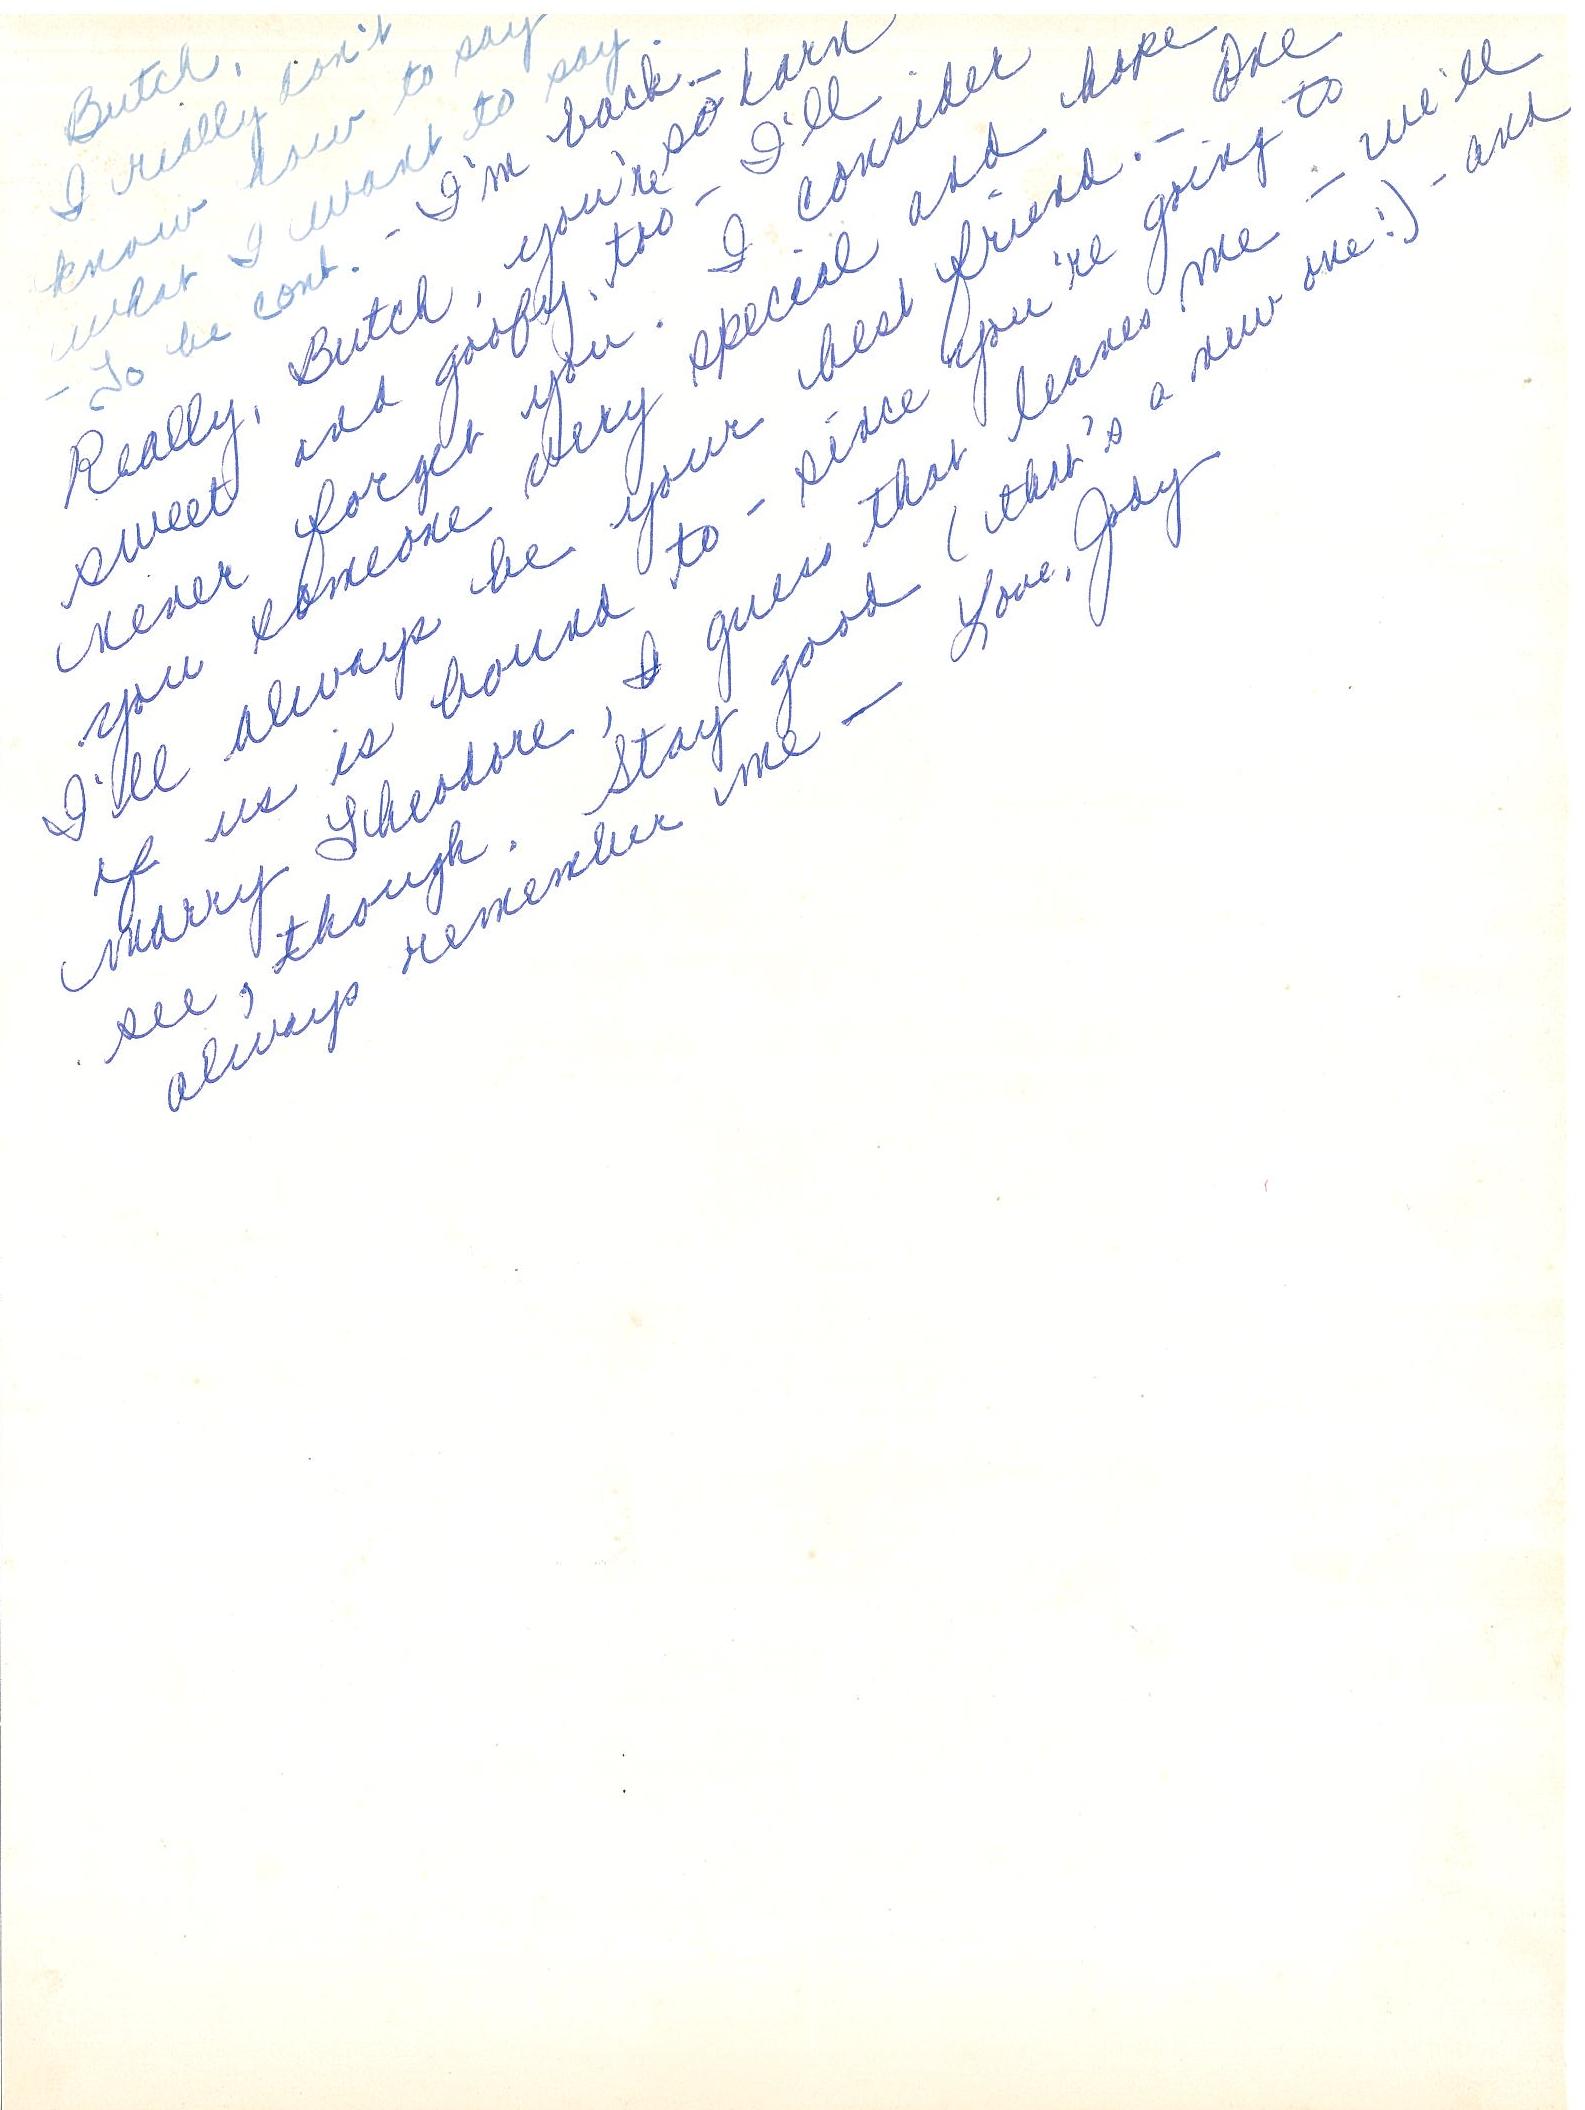 Butch,
I really don't
know how to say
what I want to say.
- To be cont. - I'm back. -
Really, Butch, you're so darn
sweet and goofy, too - I'll
never forget you. I consider
you someone very special and hope
I'll always be your best friend. - One
of us is bound to - since you're going to
marry Theodore, I guess that leaves me - we'll
see, though. Stay good (that's a new one!) - and
always remember me - Love, Jody